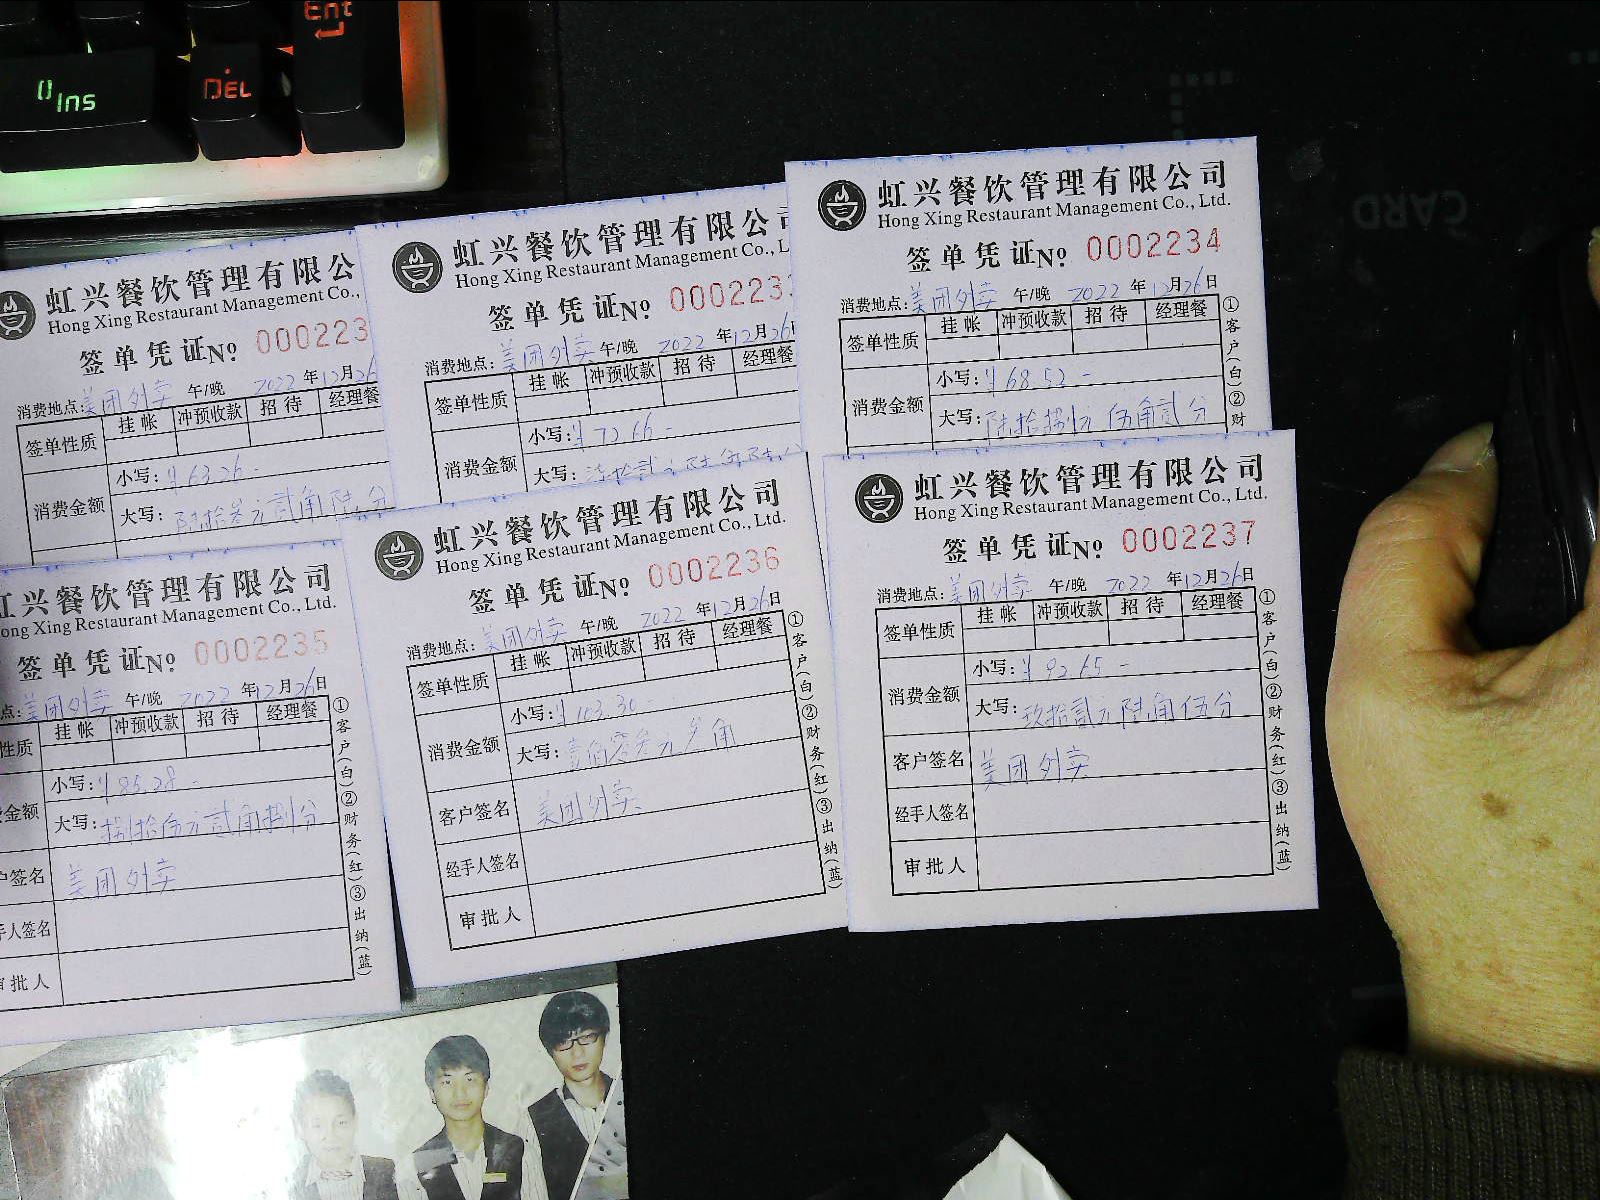 Ins
DEL
Ent
CARD
虹兴餐饮管理有限公
Hong Xing Restaurant Management Co.,
签单凭证№ 000223
消费地点:美团外卖 午/晚 2022年12月26
签单性质 挂帐 冲预收款 招待 经理餐
消费金额 小写:¥63.26-
大写:陆拾叁元贰角陆分
虹兴餐饮管理有限公
Hong Xing Restaurant Management Co., L
签单凭证№ 000223
消费地点:美团外卖 午/晚 2022年12月26日
签单性质 挂帐 冲预收款 招待 经理餐
消费金额 小写:¥72.66-
大写:柒拾贰元陆角陆分
虹兴餐饮管理有限公司
Hong Xing Restaurant Management Co., Ltd.
签单凭证№ 0002234
消费地点:美团外卖 午/晚 2022年12月26日
签单性质 挂帐 冲预收款 招待 经理餐
消费金额 小写:¥68.52-
大写:陆拾捌元伍角贰分
①客户(白)②财
虹兴餐饮管理有限公司
ong Xing Restaurant Management Co., Ltd.
签单凭证№ 0002235
点:美团外卖 午/晚 2022年12月26日
性质 挂帐 冲预收款 招待 经理餐
金额 小写:¥85.28-
大写:捌拾伍元贰角捌分
户签名 美团外卖
手人签名
审批人
①客户(白)②财务(红)③出纳(蓝)
虹兴餐饮管理有限公司
Hong Xing Restaurant Management Co., Ltd.
签单凭证№ 0002236
消费地点:美团外卖 午/晚 2022年12月26日
签单性质 挂帐 冲预收款 招待 经理餐
消费金额 小写:¥103.30-
大写:壹佰零叁元叁角
客户签名 美团外卖
经手人签名
审批人
①客户(白)②财务(红)③出纳(蓝)
虹兴餐饮管理有限公司
Hong Xing Restaurant Management Co., Ltd.
签单凭证№ 0002237
消费地点:美团外卖 午/晚 2022年12月26日
签单性质 挂帐 冲预收款 招待 经理餐
消费金额 小写:¥92.65-
大写:玖拾贰元陆角伍分
客户签名 美团外卖
经手人签名
审批人
①客户(白)②财务(红)③出纳(蓝)